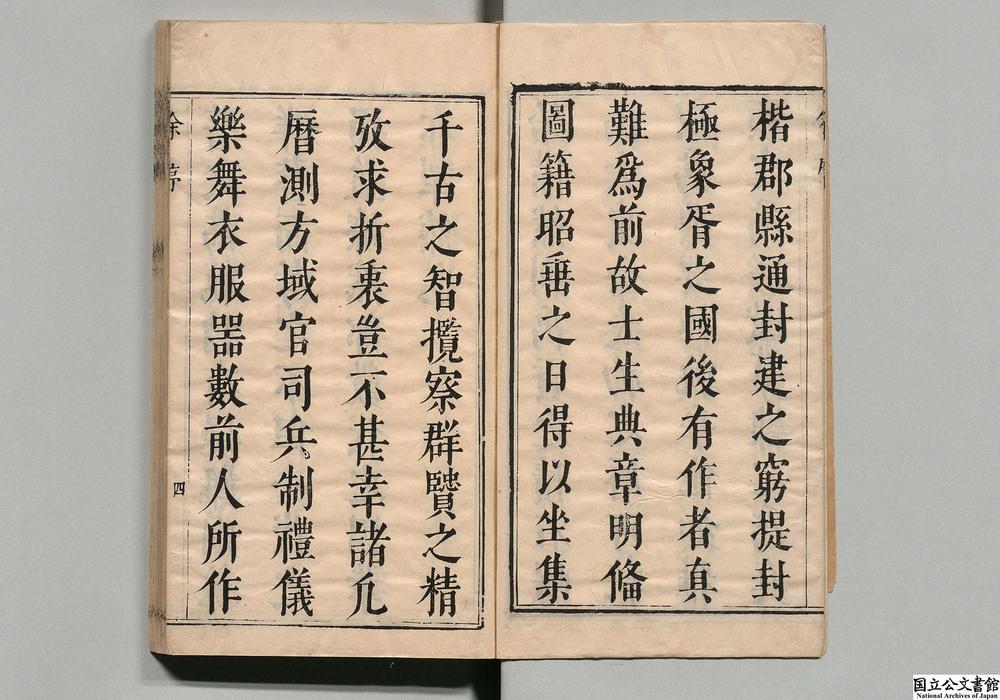 楷郡縣通封建之窮提封
極象胥之國後有作者真
難爲前故士生典章明僃
圖籍昭垂之日得以坐集
千古之智攬察群賢之精
攷求折衷豈不甚幸諸凡
曆測方域官司兵制禮儀
樂舞衣服器數前人所作
四
国立公文書館
National Archives of Japan